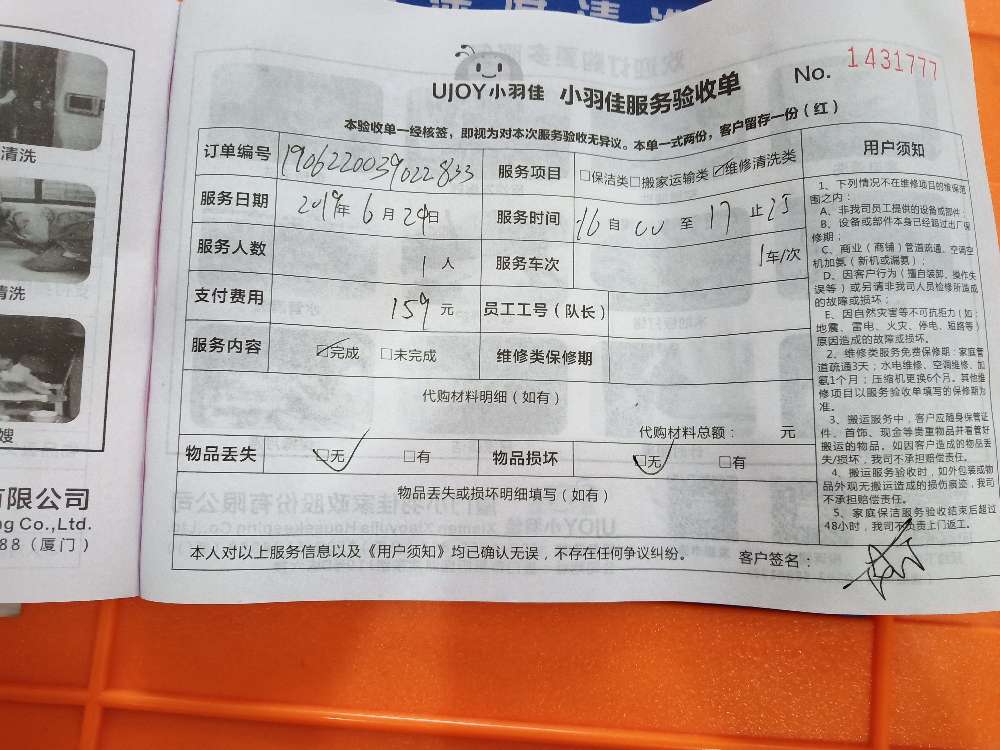 清洗
清洗
嫂
有限公司
ng Co.,Ltd.
88（厦门）
UJOY小羽佳 小羽佳服务验收单
No. 1431777
本验收单一经核签，即视为对本次服务验收无异议。本单一式两份，客户留存一份（红）
订单编号 1906220039022833 服务项目 □保洁类□搬家运输类☑维修清洗类
服务日期 2019年6月24日 服务时间 16自00至17止25
服务人数 1人 服务车次 1车/次
支付费用 159元 员工工号（队长）
服务内容 ☑完成 □未完成 维修类保修期
代购材料明细（如有）
代购材料总额： 元
物品丢失 ☑无 □有 物品损坏 ☑无 □有
物品丢失或损坏明细填写（如有）
本人对以上服务信息以及《用户须知》均已确认无误，不存在任何争议纠纷。 客户签名：
用户须知
1、下列情况不在维修项目的维保范
围之内：
A、非我司员工提供的设备或部件；
B、设备或部件本身已经超过出厂保
修期；
C、商业（商铺）管道疏通、空调空
机加氨（新机或漏氨）；
D、因客户行为（擅自装卸、操作失
误等）或另请非我司人员检修所造成
的故障或损坏；
E、因自然灾害等不可抗拒力（如：
地震、雷电、火灾、停电、短路等）
原因造成的故障或损坏。
2、维修类服务免费保修期：家庭管
道疏通3天；水电维修、空调维修、加
氨1个月；压缩机更换6个月。其他维
修项目以服务验收单填写的保修期为
准。
3、搬运服务中，客户应随身保管证
件、首饰、现金等贵重物品并看管好
搬运的物品。如因客户造成的物品丢
失/损坏，我司不承担赔偿责任。
4、搬运服务验收时，如外包装或物
品外观无搬运造成的损伤痕迹，我司
不承担赔偿责任。
5、家庭保洁服务验收结束后超过
48小时，我司不负责上门返工。